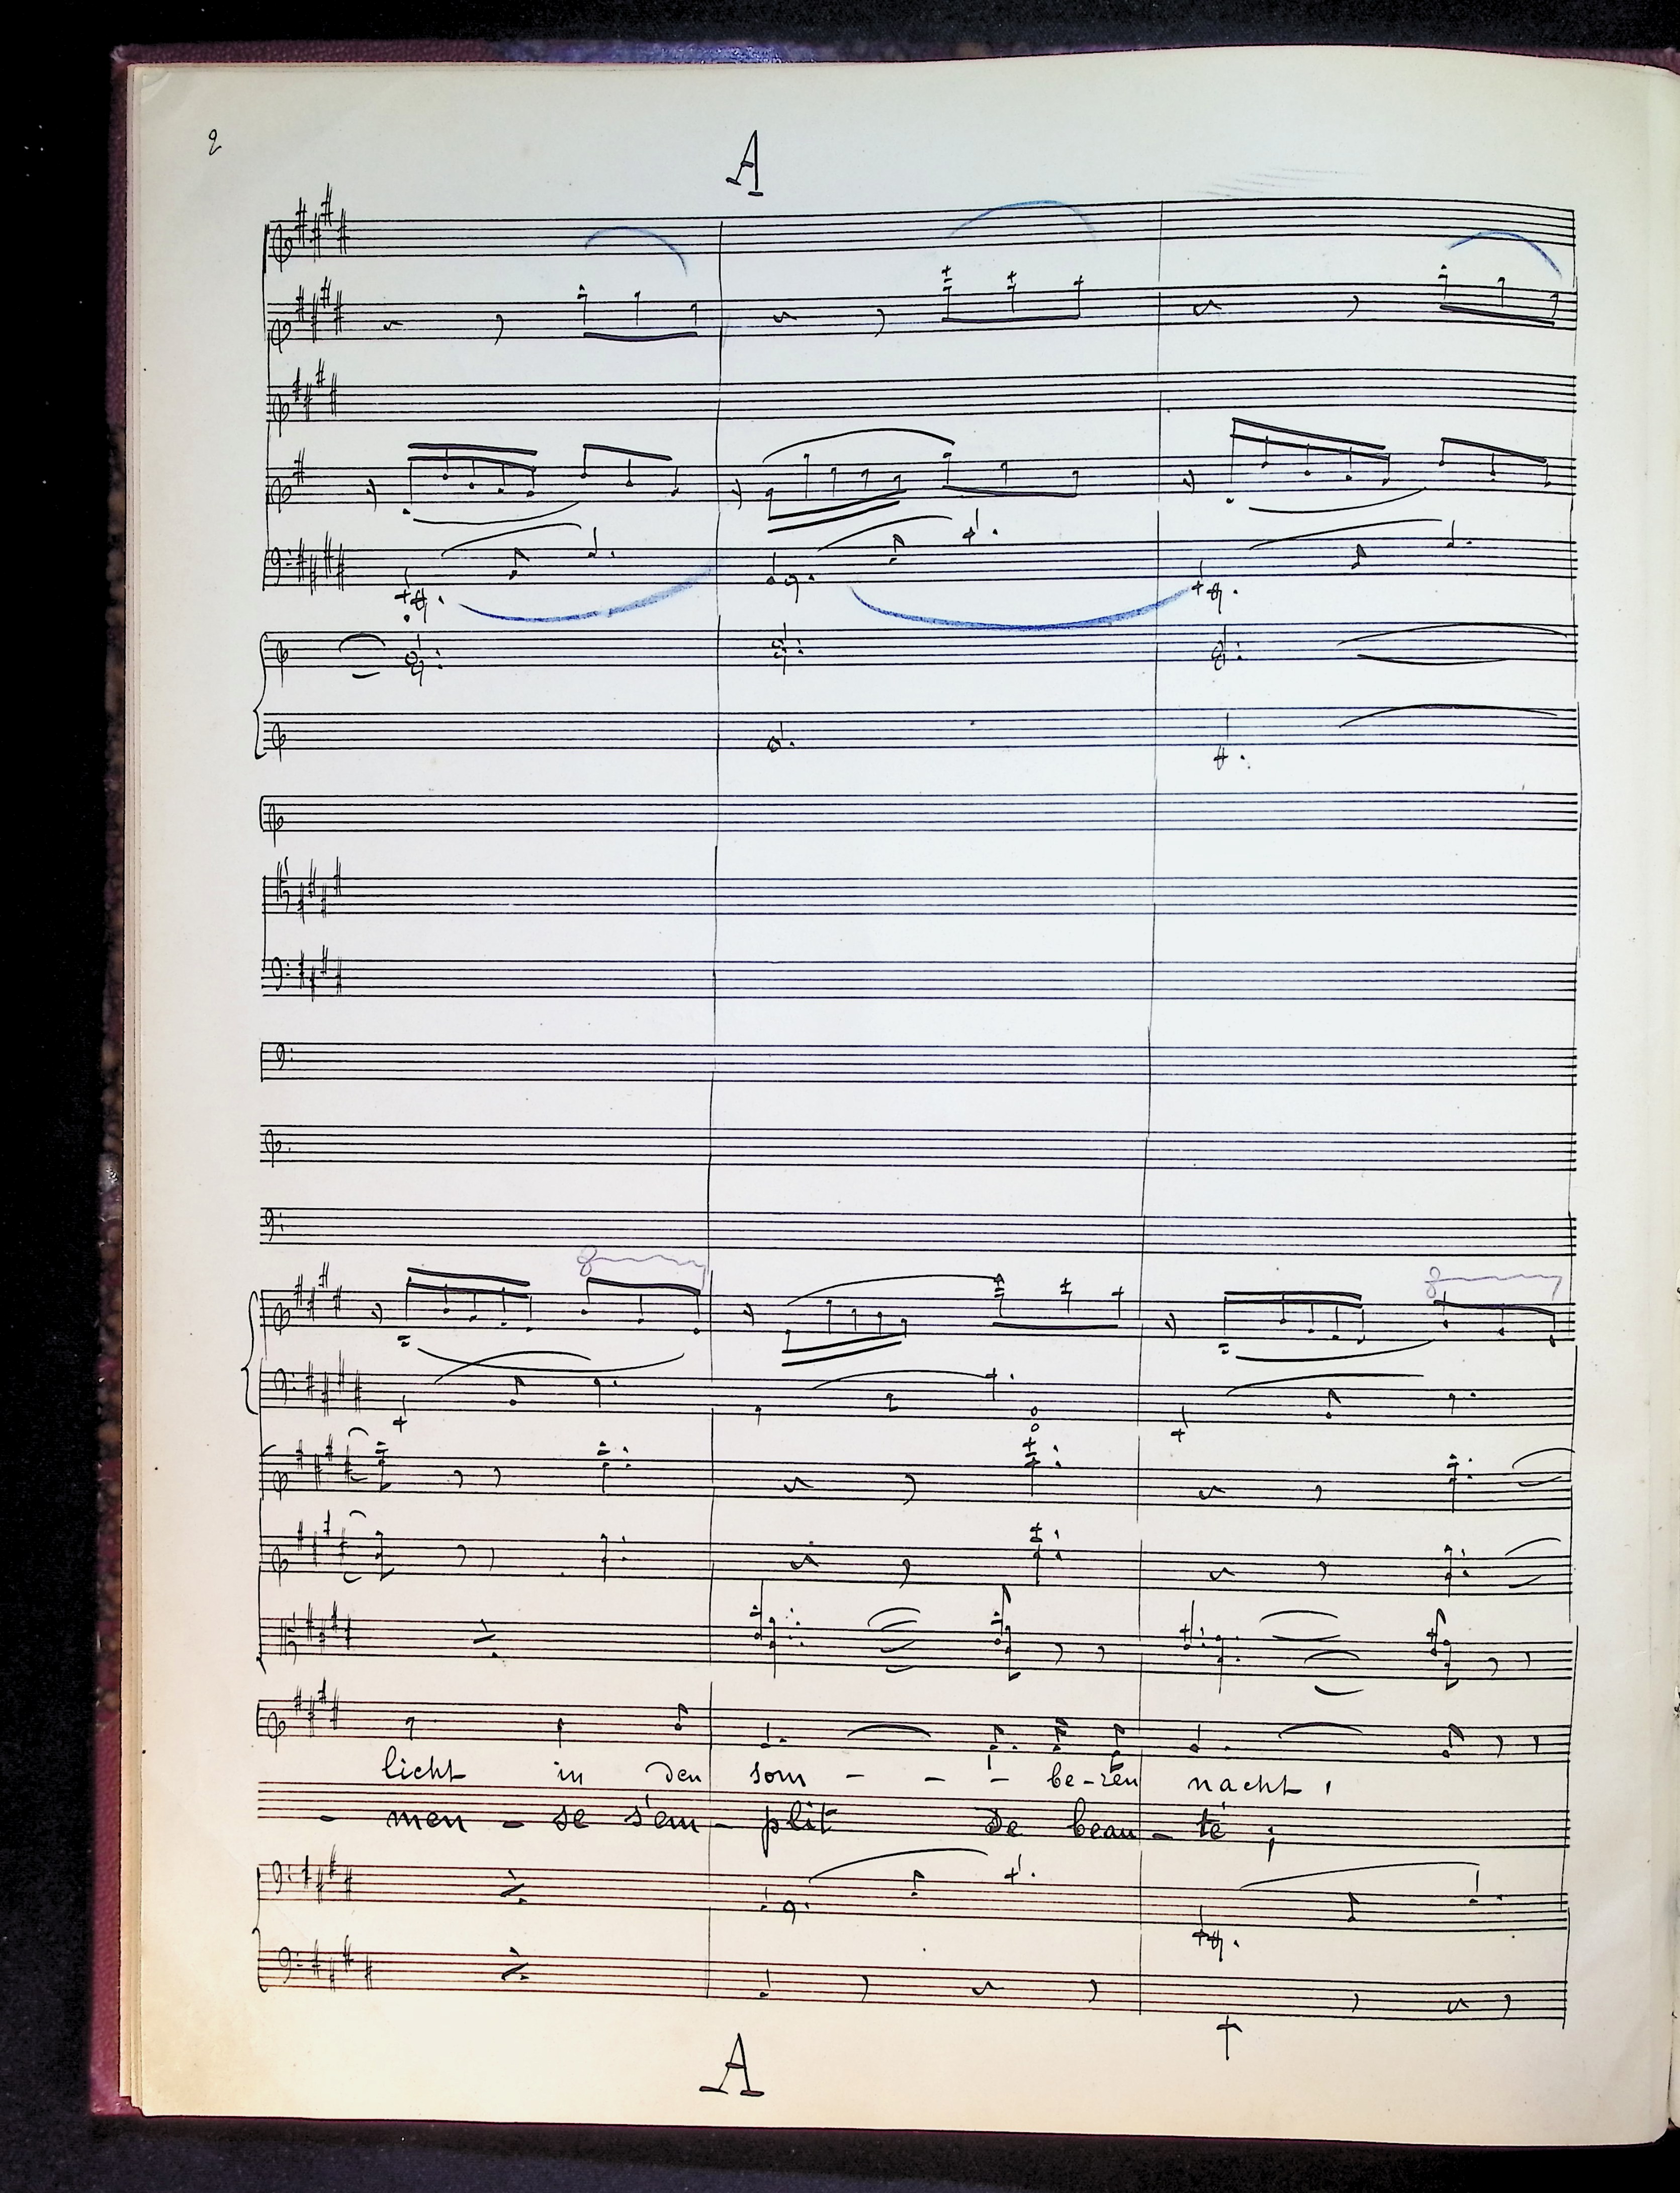 2
A
licht in den som - - - be-ren nacht,
- men - se s'em - plit de beau - té ;
A